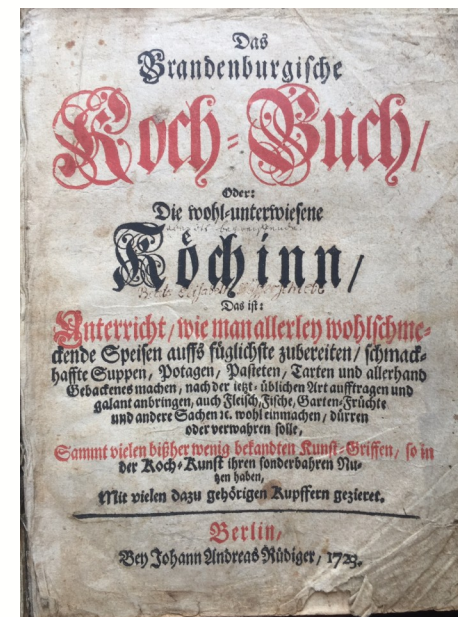 Das
Brandenburgische
Koch-Buch/
Oder:
Die wohl-unterwiesene
Köchinn/
Das ist:
Unterricht/ wie man allerley wohlschme-
ckende Speisen auffs füglichste zubereiten/ schmack-
haffte Suppen, Potagen, Pasteten, Tarten und allerhand
Gebackenes machen, nach der ietzt-üblichen Art aufftragen und
galant anbringen, auch Fleisch, Fische, Garten-Früchte
und andere Sachen ꝛc. wohl einmachen/ dürren
oder verwahren solle,
Sammt vielen bißher wenig bekandten Kunst-Griffen/ so in
der Koch-Kunst ihren sonderbahren Nu-
tzen haben,
Mit vielen dazu gehörigen Kupffern gezieret.
Berlin/
Bey Johann Andreas Rüdiger/ 1723.